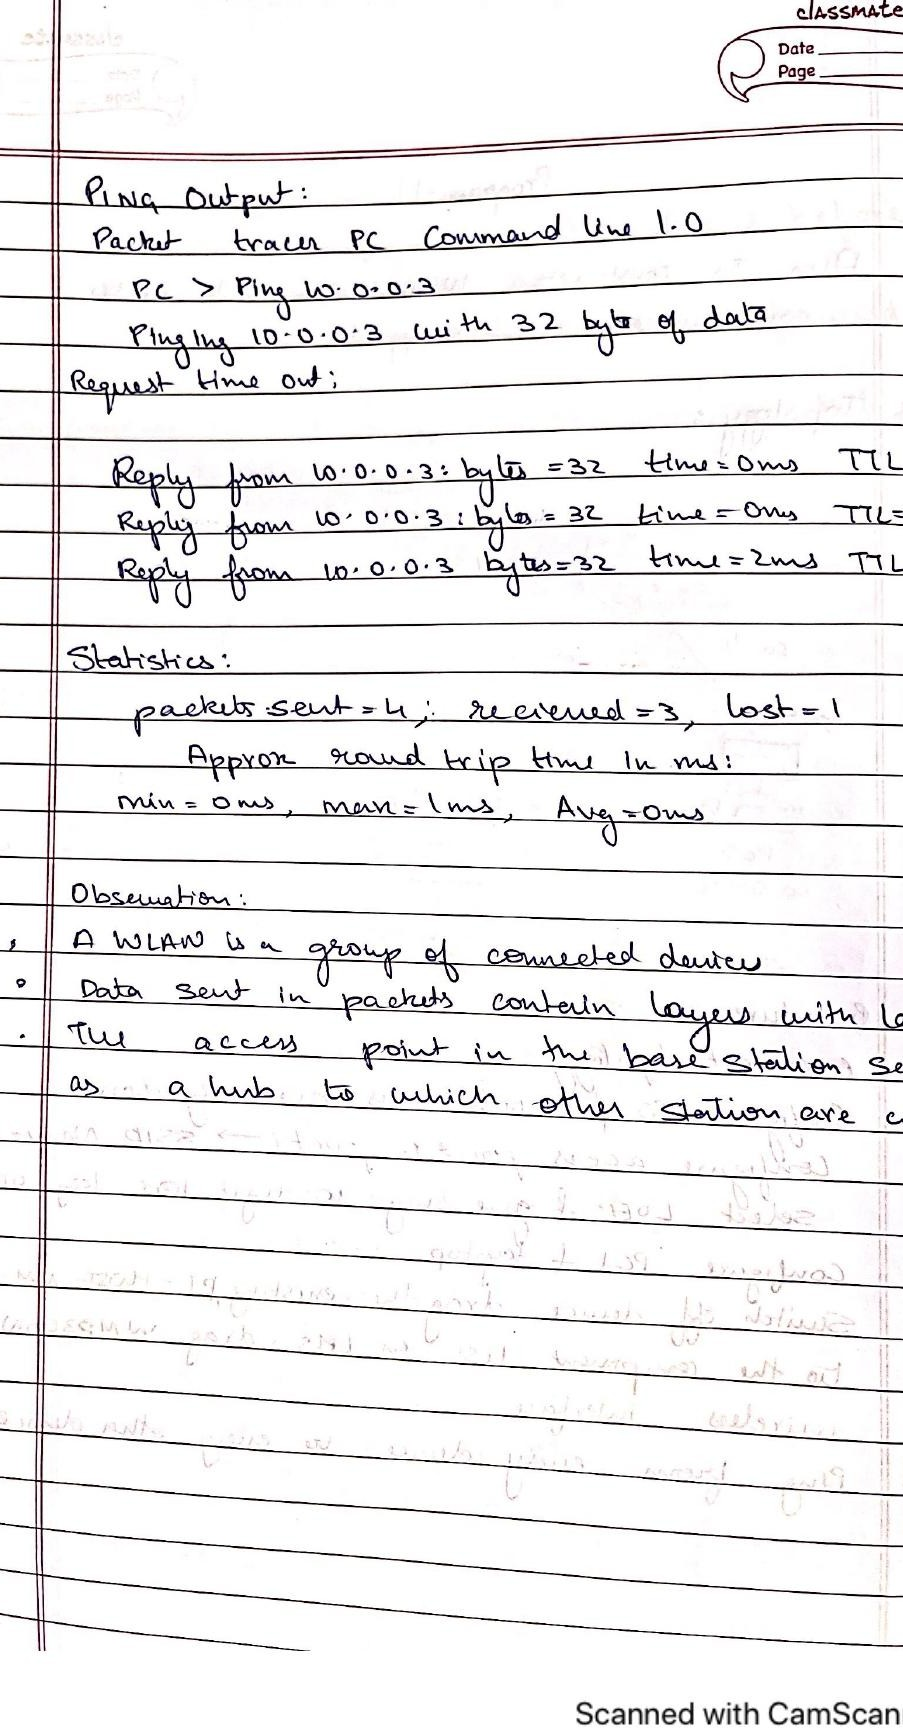 classmate
Date
Page
PING Output:
Packet tracer PC Command line 1.0
PC > Ping 10.0.0.3
Pinging 10.0.0.3 with 32 byte of data
Request time out;
Reply from 10.0.0.3: bytes = 32 time = 0ms TTL
Reply from 10.0.0.3: bytes = 32 time = 0ms TTL=
Reply from 10.0.0.3 bytes=32 time = 2ms TTL
Statistics:
packets sent = 4; recieved = 3, lost = 1
Approx round trip time in ms:
min = 0ms, max = 1ms, Avg = 0ms
Observation:
A WLAN is a group of connected devices
Data sent in packets contain layers with la
The access point in the base station se
as a hub to which other station are c
Scanned with CamScan